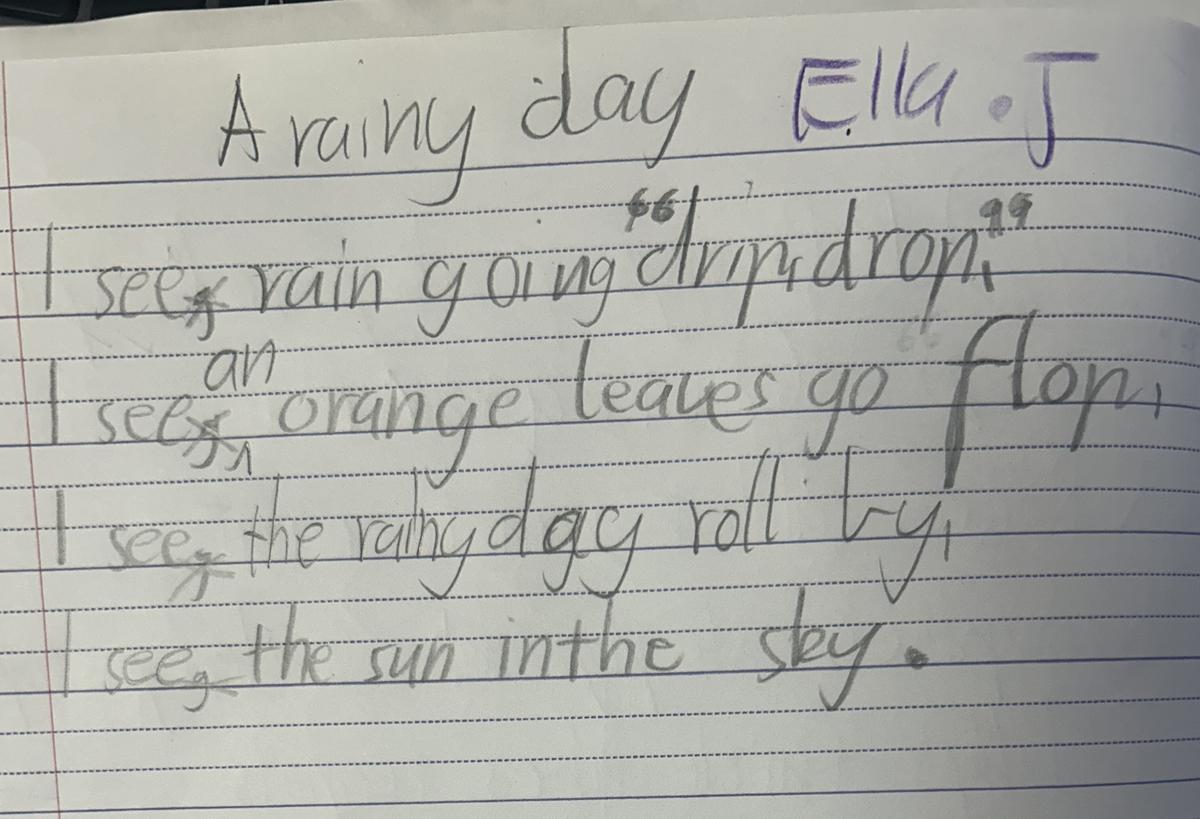 A rainy day Ella . J
I see, rain going "drip, drop,"
I see, an orange leaves go flop,
I see, the rainy day roll by,
I see, the sun in the sky.